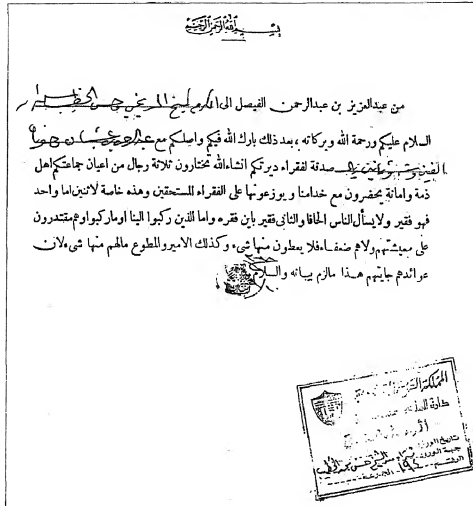 بسم الله الرحمن الرحيم
من عبدالعزيز بن عبدالرحمن الفيصل الى المكرم
السلام عليكم ورحمة الله وبركاته ، بعد ذلك بارك الله فيكم واصلكم مع
صدقة لفقراء ديرتكم انشاءالله تختارون ثلاثة رجال من اعيان جماعتكم اهل
ذمة وامانة يحضرون مع خدامنا ويوزعونها على الفقراء المستحقين وهذه خاصة لاثنين اما واحد
فهو فقير ولا يسأل الناس الحافا والثاني فقير باين فقره واما الذين ركبوا الينا اوما ركبوا وهم مقتدرون
على معيشتهم ولاهم ضعفاء فلا يعطون منها شيء وكذلك الامير والمطوع مالهم منها شيء لان
عوائدهم جايتهم هذا مالزم بيانه والسلام
المملكة العربية
دارة الملك
تاريخ الورود
جهة الورود
الرقم